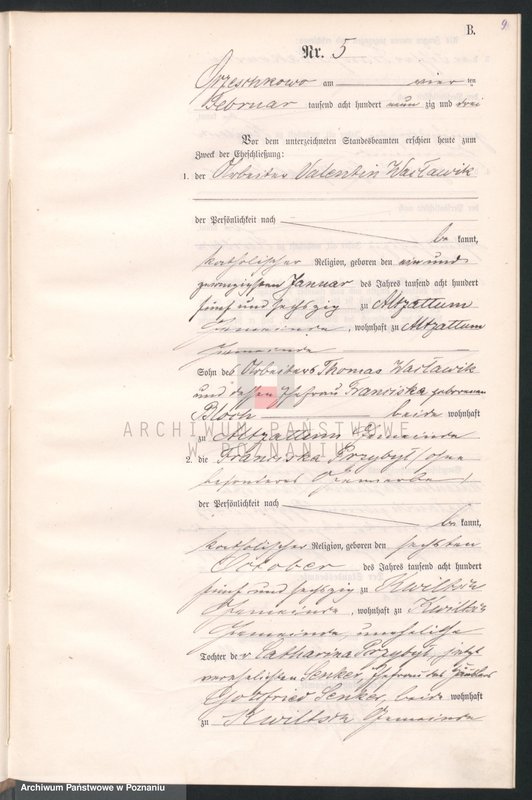 B.
9
Nr. 5
Orzeschkowo am vier ten
Februar tausend acht hundert neun zig und drei
Vor dem unterzeichneten Standesbeamten erschien heute zum
Zweck der Eheschließung:
1. der Arbeiter Valentin Wacławik
der Persönlichkeit nach
be kannt,
katholischer Religion, geboren den ein und
zwanzigsten Januar des Jahres tausend acht hundert
fünf und sechszig zu Altzattum
Gemeinde, wohnhaft zu Altzattum
Gemeinde
Sohn des Arbeiters Thomas Wacławik
und dessen Ehefrau Franciska geborenen
Bloch beide wohnhaft
zu Altzattum Gemeinde
2. die Franciska Przybył ohne
besonderes Gewerbe
der Persönlichkeit nach
be kannt,
katholischer Religion, geboren den sechsten
October des Jahres tausend acht hundert
fünf und sechszig zu Kwiltsch
Gemeinde, wohnhaft zu Kwiltsch
Gemeinde uneheliche
Tochter der Catharina Przybył, jetzt
verehelichten Senker, Ehefrau des
Gottfried Senker, beide wohnhaft
zu Kwiltsch Gemeinde
ARCHIWUM PAŃSTWOWE
W POZNANIU
Archiwum Państwowe w Poznaniu